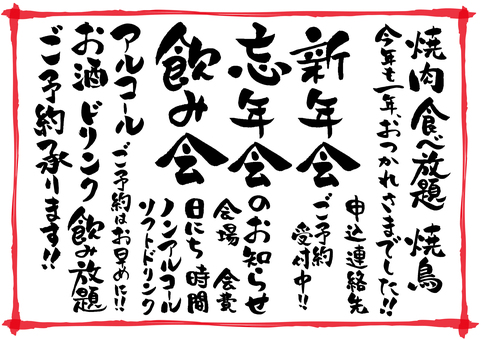 焼肉 食べ放題 焼鳥
今年も一年、おつかれさまでした!!
新年会
申込連絡先
ご予約
受付中!!
忘年会のお知らせ
会場 会費
飲み会
日にち 時間
ノンアルコール
ソフトドリンク
アルコール
ご予約はお早めに!!
お酒 ドリンク 飲み放題
ご予約承ります!!